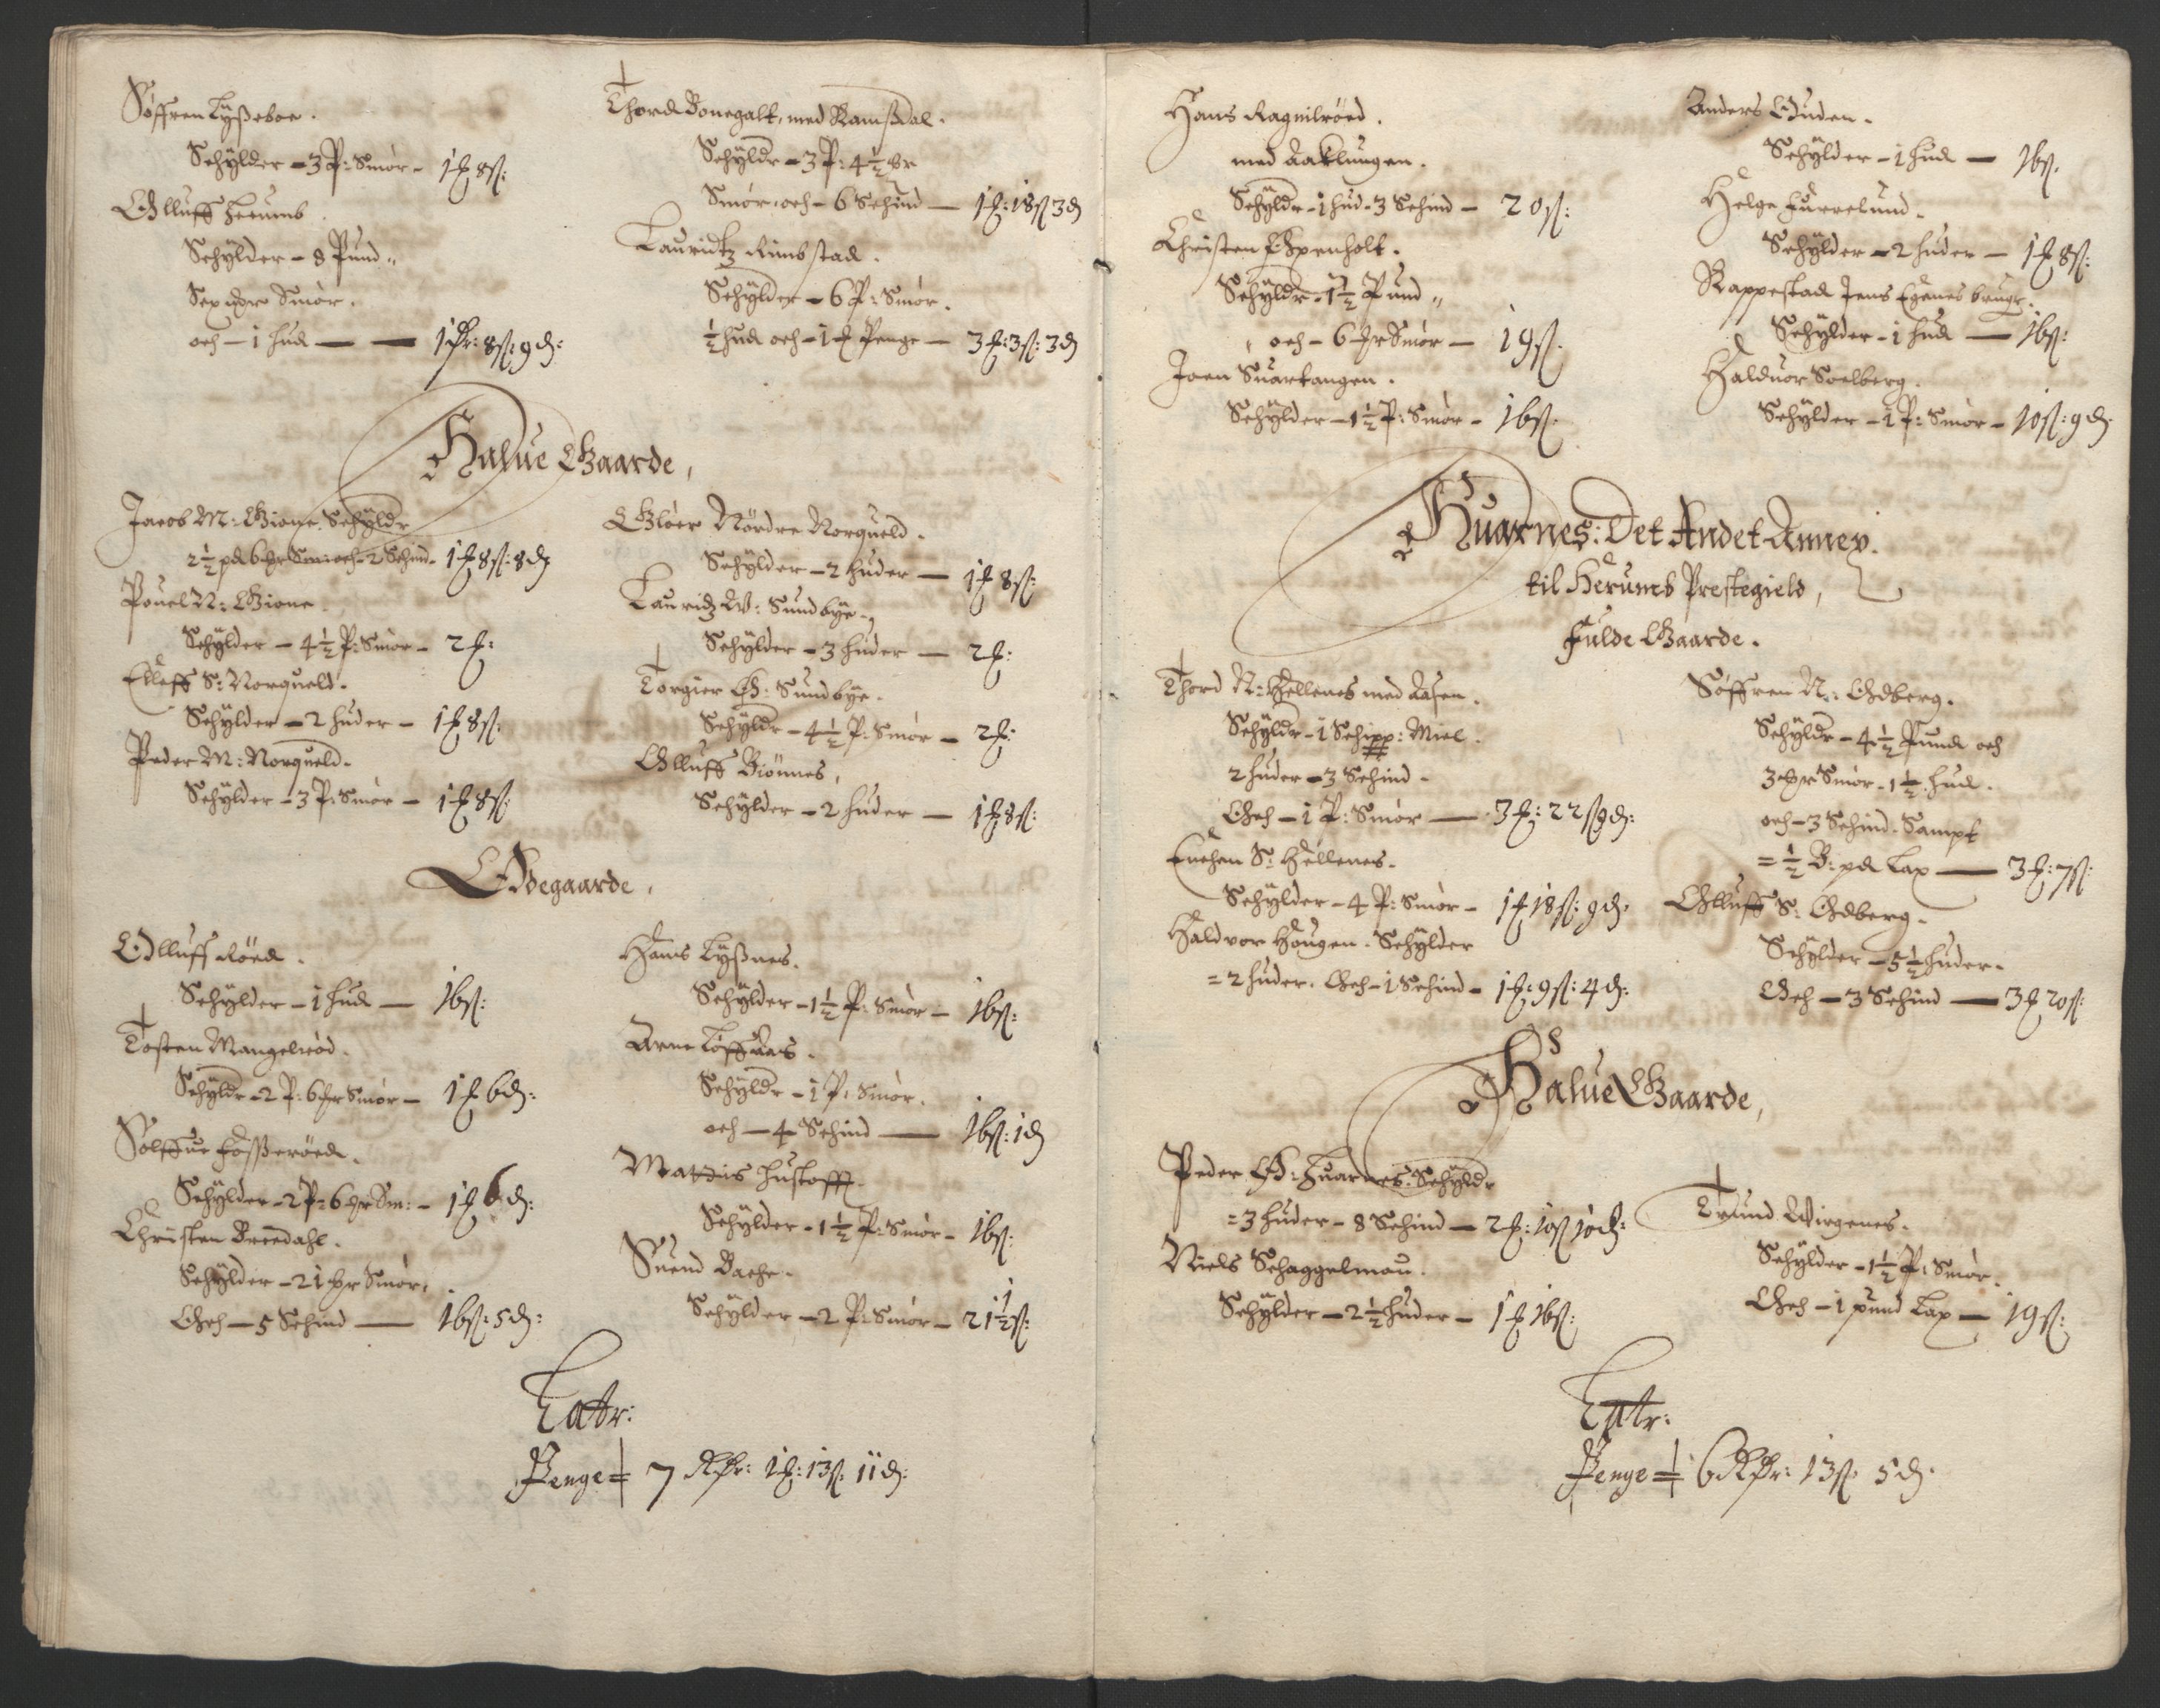 Søffren Lyßeboe.
Schylder – 3 P: Smør – 1 ẜ 8 ß:
Olluff
Schylder – 8 Pund
Smør.
och – 1 hud — 8 ß: 9 d:
Thord Bonegalt, med Ramßdal.
Schyldr – 3 P: 4½
Smør och – 6 Schind — 1 ẜ: 18 ß 3 d
Lauridtz Rimbstad.
Schylder – 6 P: Smør.
½ hud och – 1 ẜ Penge — 3 ẜ: 3 ß: 3 d
Halue Gaarde,
Jacob M: Gione Schyldr
2½ pd 6 och – 2 Schind – 1 ẜ 8 ß: 8 d
Pouel N: Gione.
Schylder – 4½ P: Smør – 2 ẜ:
Elleff S: Norqueld.
Schylder – 2 huder – 1 ẜ 8 ß:
Peder M: Norqueld.
Schylder – 3 P: Smør – 1 ẜ 8 ß:
Gloer Nordre Norqueld.
Schylder – 2 huder — 1 ẜ 8 ß:
Lauridz W: Sundbye.
Schylder – 3 huder — 2 ẜ:
Torgier Ø: Sundbye.
Schyldr – 4½ P: Smør – 2 ẜ:
Olluff Biønnes,
Schylder – 2 huder — 1 ẜ 8 ß:
Ødegaarde,
Olluff Røed.
Schylder – 1 hud — 16 ß:
Tosten Mangelrød.
Schyldr – 2 P: 6 Smør – 1 ẜ 6 d:
Sølffue Foßerøed.
Schylder – 2 P: 6 Sm: – 1 ẜ 6 d:
Christen Breedahl.
Schylder – 21 Smør,
Och – 5 Schind — 16 ß: 5 d:
Hans Lyßnes.
Schylder – 1½ P: Smør – 16 ß:
Arne Løffaas.
Schyldr – 1 P: Smør.
och – 4 Schind — 16 ß: 1 d
Mattis Hustofft.
Schylder – 1½ P: Smør – 16 ß:
Suend Bache.
Schylder – 2 P: Smør – 21½ ß:
Latr:
Penge = 7 Rdr: 1 ẜ: 13 ß: 11 d:
Hans Ragnilrøed.
med Aaklungen.
Schyldr – 1 hud – 3 Schind – 20 ß:
Christen Espenholt.
Schyldr – 1½ Pund
och – 6 Smør – 19 ß.
Joen Suartangen.
Schylder – 1½ P: Smør – 16 ß.
Anders Gusen.
Schylder – 1 hud — 16 ß.
Helge Furrelund.
Schylder – 2 huder – 1 ẜ 8 ß:
Rappestad Jens Egenes brugr.
Schylder – 1 hud — 16 ß:
Halduor Soelberg.
Schylder – 1 P: Smør – 10 ß: 9 d.
Huarnes: Det Andet Annex.
til Herumb Prestegield,
Fulde Gaarde.
Thord N: Hellenes med Aasen.
Schyldr – 1 Schipp: Miel.
2 huder – 3 Schind –
Och – 1 P: Smør — 3 ẜ: 22 ß 9 d:
Enchen S: Hellenes.
Schylder – 4 P: Smør – 1 ẜ 18 ß: 9 d.
Haldvor Hougen. Schylder
= 2 huder. Och – 1 Schind – 1 ẜ: 9 ß: 4 d:
Søffren N: Odberg.
Schyldr – 4½ Pund och
3 Smør – 1½ hud.
och – 3 Schind. Sampt
= ½ B: pd Lax — 3 ẜ: 7 ß:
Olluff S: Odberg.
Schylder – 5½ huder.
Och – 3 Schind — 3 ẜ 20 ß:
Halue Gaarde,
Peder Ø: Huarnes. Schyldr
= 3 huder – 8 Schind — 2 ẜ: 10 ß 10 d:
Niels Schaggelmou.
Schylder – 2½ huder – 1 ẜ 16 ß:
Trund Wirgenes.
Schylder – 1½ P: Smør.
Och – 1 pund Lax — 19 ß:
Latr:
Penge = 6 Rdr: 13 ß. 5 d.